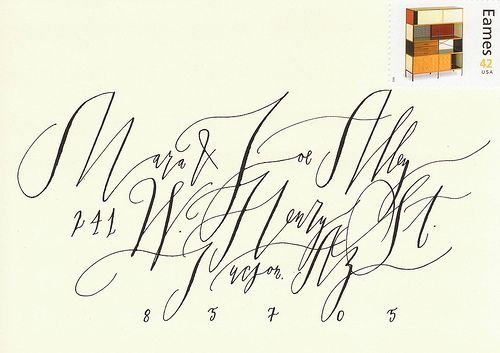 Eames
42
USA
Mara & Joe Alley
241 W. Henry St.
Tucson. Az
85705